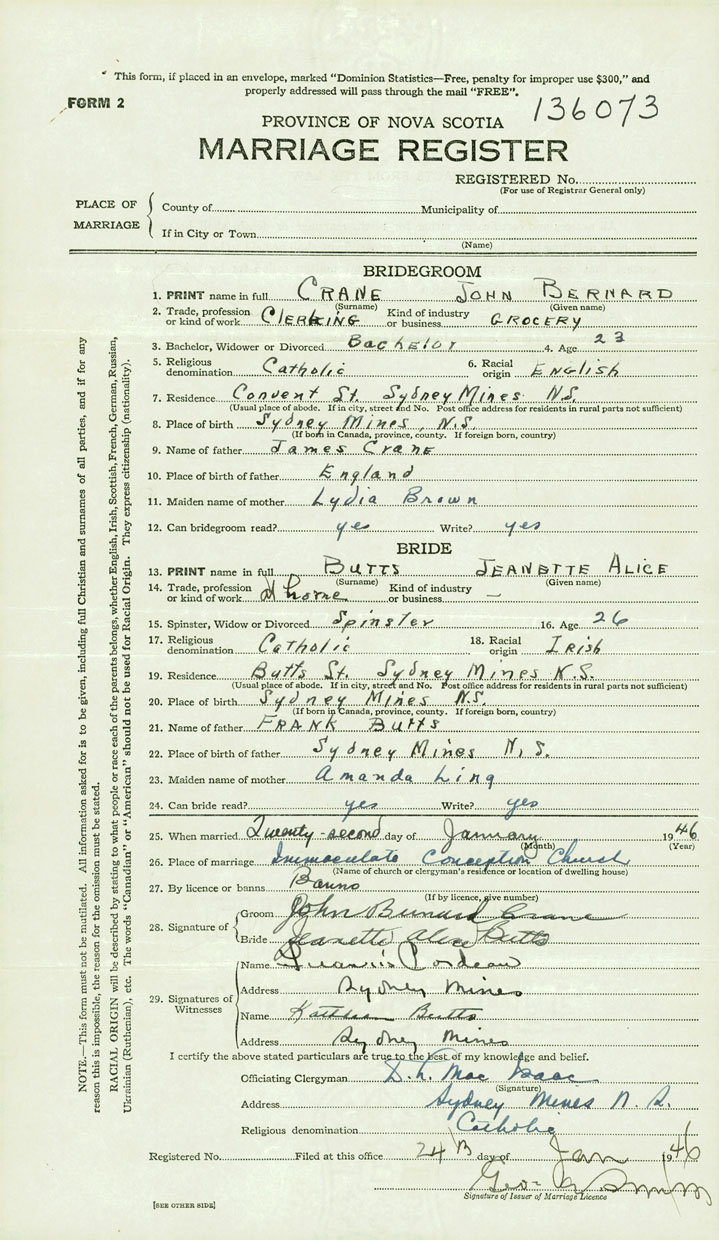 This form, if placed in an envelope, marked "Dominion Statistics—Free, penalty for improper use $300," and
properly addressed will pass through the mail "FREE".
FORM 2
136073
PROVINCE OF NOVA SCOTIA
MARRIAGE REGISTER
REGISTERED No.
(For use of Registrar General only)
PLACE OF MARRIAGE
County of Municipality of
If in City or Town
(Name)
BRIDEGROOM
1. PRINT name in full CRANE JOHN BERNARD
(Surname) (Given name)
2. Trade, profession or kind of work Clerking Kind of industry or business GROCERY
3. Bachelor, Widower or Divorced Bachelor 4. Age 23
5. Religious denomination Catholic 6. Racial origin English
7. Residence Convent St. Sydney Mines N.S.
(Usual place of abode. If in city, street and No. Post office address for residents in rural parts not sufficient)
8. Place of birth Sydney Mines, N.S.
(If born in Canada, province, county. If foreign born, country)
9. Name of father James Crane
10. Place of birth of father England
11. Maiden name of mother Lydia Brown
12. Can bridegroom read? yes Write? yes
BRIDE
13. PRINT name in full BUTTS JEANETTE ALICE
(Surname) (Given name)
14. Trade, profession or kind of work at home Kind of industry or business —
15. Spinster, Widow or Divorced Spinster 16. Age 26
17. Religious denomination Catholic 18. Racial origin Irish
19. Residence Butts St. Sydney Mines N.S.
(Usual place of abode. If in city, street and No. Post office address for residents in rural parts not sufficient)
20. Place of birth Sydney Mines N.S.
(If born in Canada, province, county. If foreign born, country)
21. Name of father FRANK BUTTS
22. Place of birth of father Sydney Mines N.S.
23. Maiden name of mother Amanda Ling
24. Can bride read? yes Write? yes
25. When married Twenty-second day of January 1946
(Month) (Year)
26. Place of marriage Immaculate Conception Church
(Name of church or clergyman's residence or location of dwelling house)
27. By licence or banns Banns
(If by licence, give number)
28. Signature of
Groom John Bernard Crane
Bride Jeanette Alice Butts
29. Signatures of Witnesses
Name Francis
Address Sydney Mines
Name Kathleen Butts
Address Sydney Mines
I certify the above stated particulars are true to the best of my knowledge and belief.
Officiating Clergyman Mac Isaac
(Signature)
Address Sydney Mines N.S.
Religious denomination Catholic
Registered No. Filed at this office 24th day of Jan 1946
Geo
Signature of Issuer of Marriage Licence
[SEE OTHER SIDE]
NOTE.—This form must not be mutilated. All information asked for is to be given, including full Christian and surnames of all parties, and if for any
reason this is impossible, the reason for the omission must be stated.
RACIAL ORIGIN will be described by stating to what people or race each of the parents belongs, whether English, Irish, Scottish, French, German, Russian,
Ukrainian (Ruthenian), etc. The words "Canadian" or "American" should not be used for Racial Origin. They express citizenship (nationality).